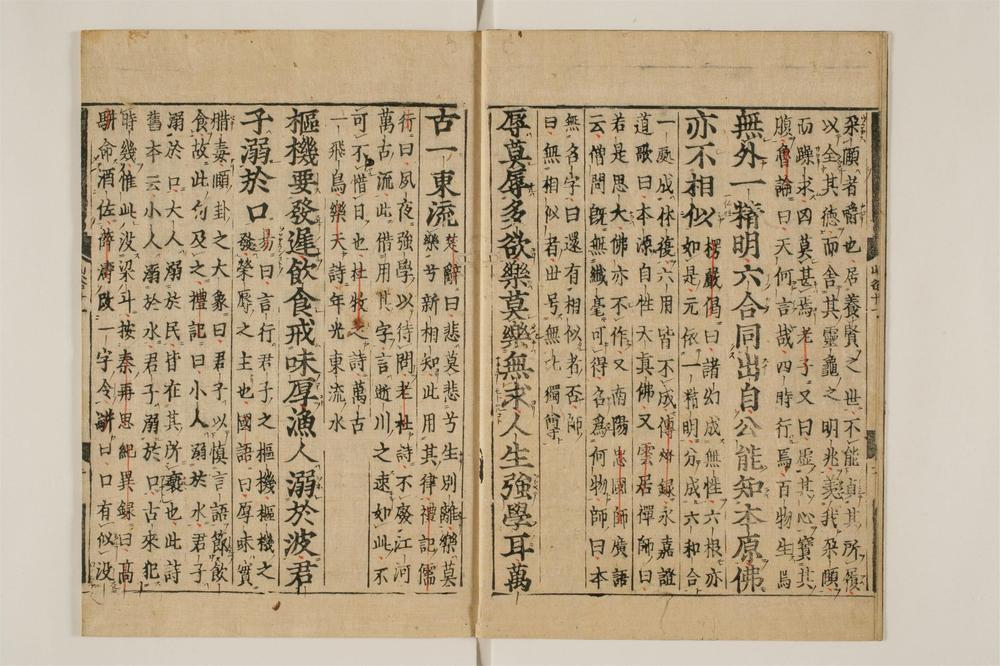 朶頤者爵也居養賢之世不能貞其所履
以全其德而舍其靈龜之明兆羨我朶頤
而躁求四莫甚焉老子又曰虛其心實其
頤魯論曰天何言哉四時行焉百物生焉
無外一精明六合同出自公能知本原佛
亦不相似楞嚴偈曰諸幻成無性六根亦
如是元依一精明分成六和合
一處成休復六用皆不成傳灯錄永嘉證
道歌曰本源自性天真佛又雲居禪師曰
若是思大佛亦不作又南陽忠國師廣語
云僧問既無纖毫可得名為何物師曰本
無名字曰還有相似者否師
曰無相似者世号無比獨尊
辱莫辱多欲樂莫樂無求人生強學耳萬
古一東流楚辭曰悲莫悲兮生別離樂莫
樂兮新相知此用其律禮記儒
行曰夙夜強學以待問老杜詩不廢江河
萬古流此借用其字言逝川之速如此不
可不惜日也杜牧之詩萬古
一飛鳥樂天詩年光東流水
樞機要發遲飲食戒味厚漁人溺於波君
子溺於口易曰言行君子之樞機樞機之
發榮辱之主也國語曰厚味實
腊毒頤卦之大象曰君子以慎言語節飲
食故此句及之禮記曰小人溺於水君子
溺於口大人溺於民皆在其所褻也此詩
舊本云小人溺於水君子溺於口古來犯
時幾惟此没梁斗按秦再思紀異録曰高
駢命酒佐薛濤改一字令駢曰口有似没